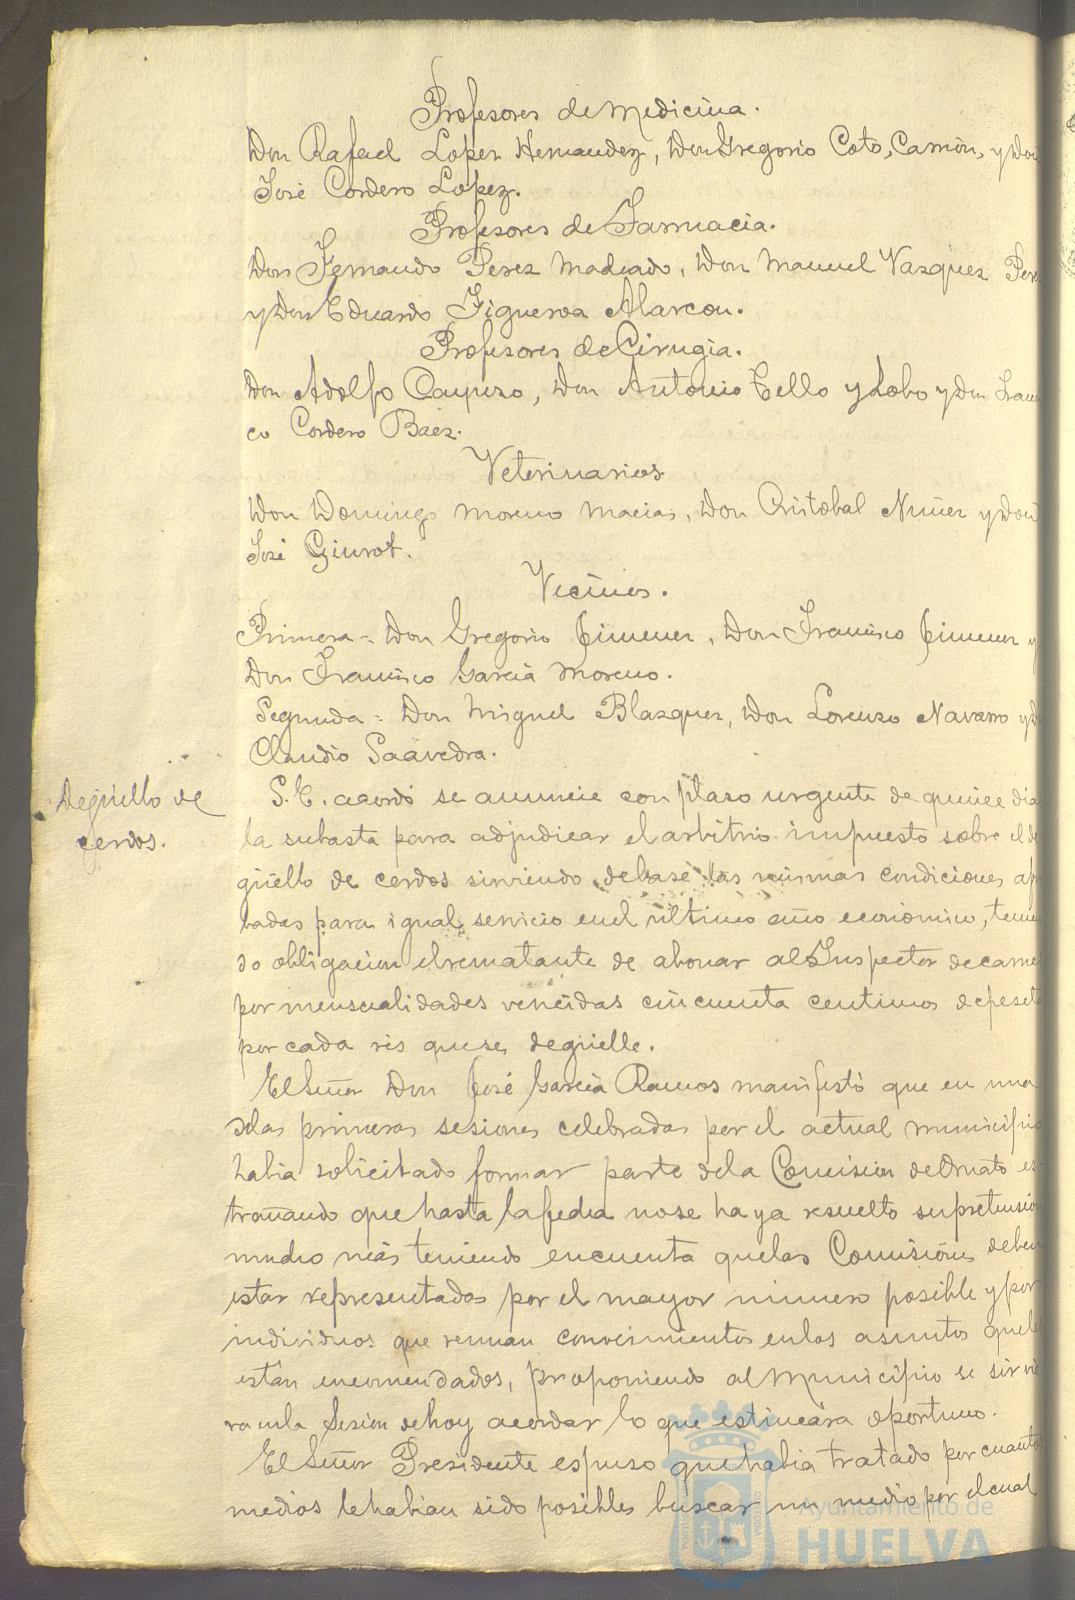 Profesores de Medicina.
Don Rafael Lopez Hernandez, Don Gregorio Coto, Carrión, y Don
José Cordero Lopez.
Profesores de Farmacia.
Don Fernando Perez Machado, Don Manuel Vazquez Pere
y Don Eduardo Figueroa Alarcon.
Profesores de Cirugia.
Don Adolfo Don Antonio Tello y Lobo y Don Fran
co Cordero Baez.
Veterinarios
Don Domingo Moreno Macias, Don Cristobal Nuñez y Don
José
Vecinos.
Primera = Don Gregorio Jimenez, Don Francisco Jimenez y
Don Francisco Garcia Moreno.
Segunda = Don Miguel Blazquez, Don Lorenzo Navarro y D
Claudio Saavedra.
Degüello de
cerdos.
S.E. acordó se anuncie con plazo urgente de quince dia
la subasta para adjudicar el arbitrio impuesto sobre el de
güello de cerdos sirviendo de base las mismas condiciones apr
badas para igual servicio en el último año económico, tenien
do obligacion el rematante de abonar al Inspector de carne
por mensualidades vencidas cincuenta centimos de peseta
por cada res que se degüelle.
El Señor Don José Garcia Ramos manifestó que en una
delas primeras sesiones celebradas por el actual municipio
habia solicitado formar parte dela Comision de Ornato es
trañando que hasta la fecha no se haya resuelto su pretension
mucho más teniendo en cuenta que las Comisiones deben
estar representadas por el mayor número posible y por
individuos que reunan conocimientos en los asuntos que les
están encomendados, proponiendo al Municipio se sirvie
ra en la Sesion de hoy acordar lo que estimára oportuno.
El Señor Presidente espuso que habia tratado por cuantos
medios le habian sido posibles buscar un medio por el cual
Ayuntamiento de
HUELVA